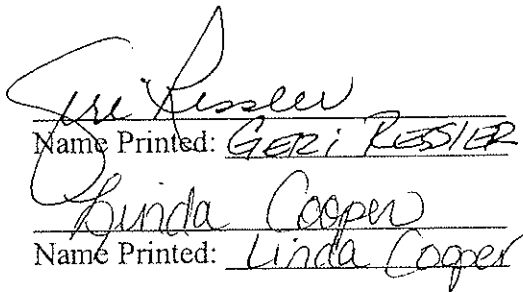 Geri Ressler
Name Printed: GERi RESSlER
Linda Cooper
Name Printed: Linda Cooper